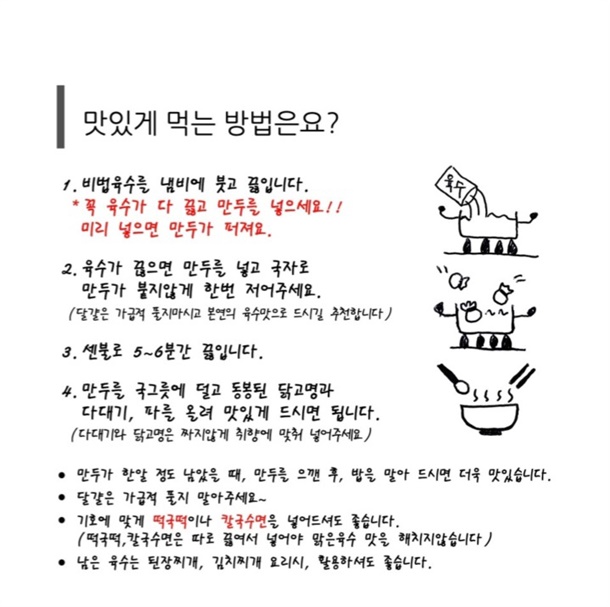 맛있게 먹는 방법은요?
1. 비법육수를 냄비에 붓고 끓입니다.
육수
* 꼭 육수가 다 끓고 만두를 넣으세요!!
미리 넣으면 만두가 퍼져요.
2. 육수가 끓으면 만두를 넣고 국자로
만두가 붙지않게 한번 저어주세요.
(달걀은 가급적 풀지마시고 본연의 육수맛으로 드시길 추천합니다)
3. 센불로 5~6분간 끓입니다.
4. 만두를 국그릇에 덜고 동봉된 닭고명과
다대기, 파를 올려 맛있게 드시면 됩니다.
(다대기와 닭고명은 짜지않게 취향에 맞춰 넣어주세요)
• 만두가 한알 정도 남았을 때, 만두를 으깬 후, 밥을 말아 드시면 더욱 맛있습니다.
• 달걀은 가급적 풀지 말아주세요~
• 기호에 맞게 떡국떡이나 칼국수면을 넣어드셔도 좋습니다.
(떡국떡,칼국수면은 따로 끓여서 넣어야 맑은육수 맛을 해치지않습니다)
• 남은 육수는 된장찌개, 김치찌개 요리시, 활용하셔도 좋습니다.